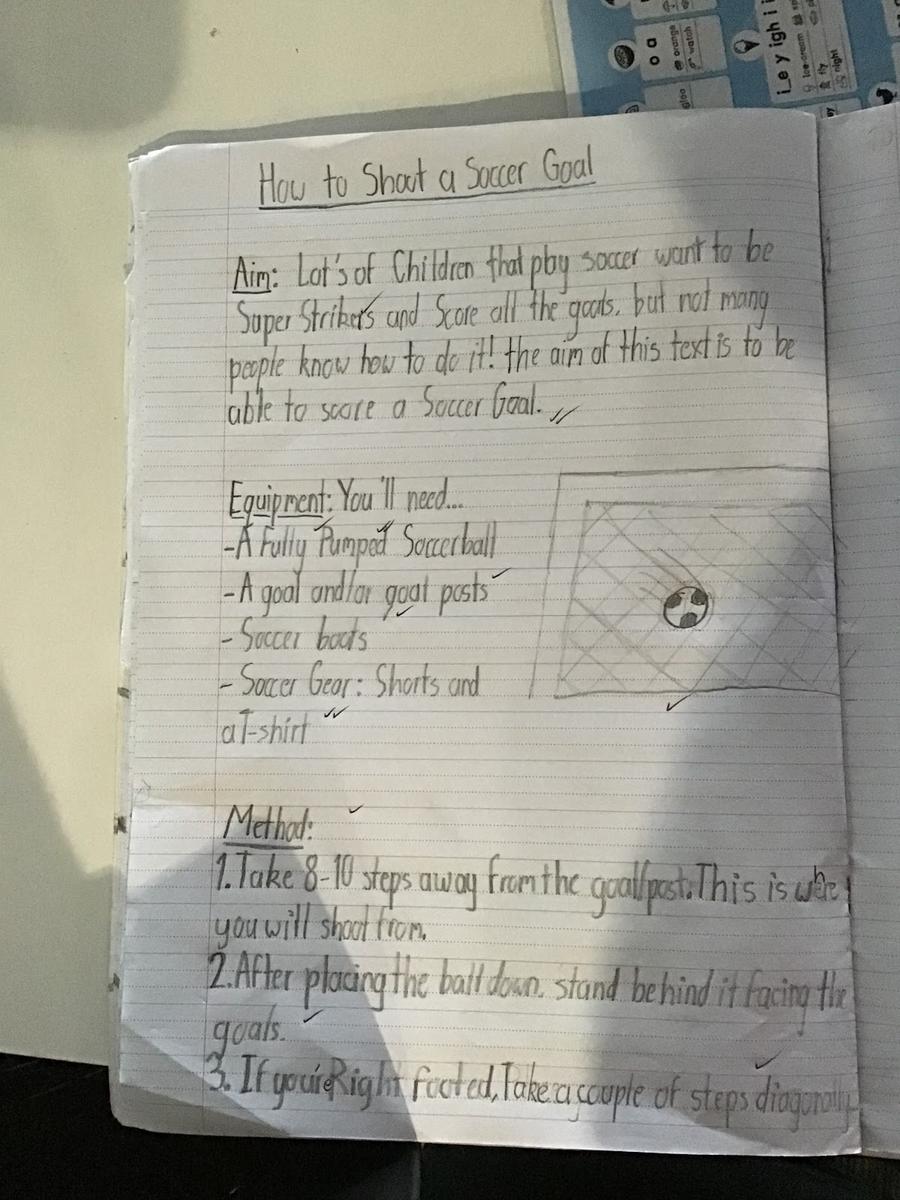 o a
orange
watch
igloo
i_e y igh i i
ice-cream
fly
night
How to Shoot a Soccer Goal
Aim: Lot's of Children that play soccer want to be
Super Strikers and Score all the goals, but not many
people know how to do it! the aim of this text is to be
able to score a Soccer Goal.
Equipment: You'll need...
-A Fully Pumped Soccerball
-A goal and/or goal posts
- Soccer boots
- Soccer Gear: Shorts and
a T-shirt
Method:
1. Take 8-10 steps away from the goalpost. This is where
you will shoot from.
2. After placing the ball down. stand behind it facing the
goals.
3. If you're Right footed, Take a couple of steps diagonally